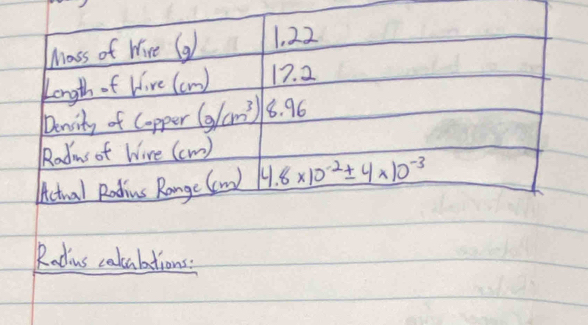 Mass of Wire (g) 1.22
Length of Wire (cm) 17.2
Density of Copper (g/cm³) 8.96
Radius of Wire (cm)
Actual Radius Range (cm) 4.8 x 10⁻² ± 4 x 10⁻³
Radius calculations: